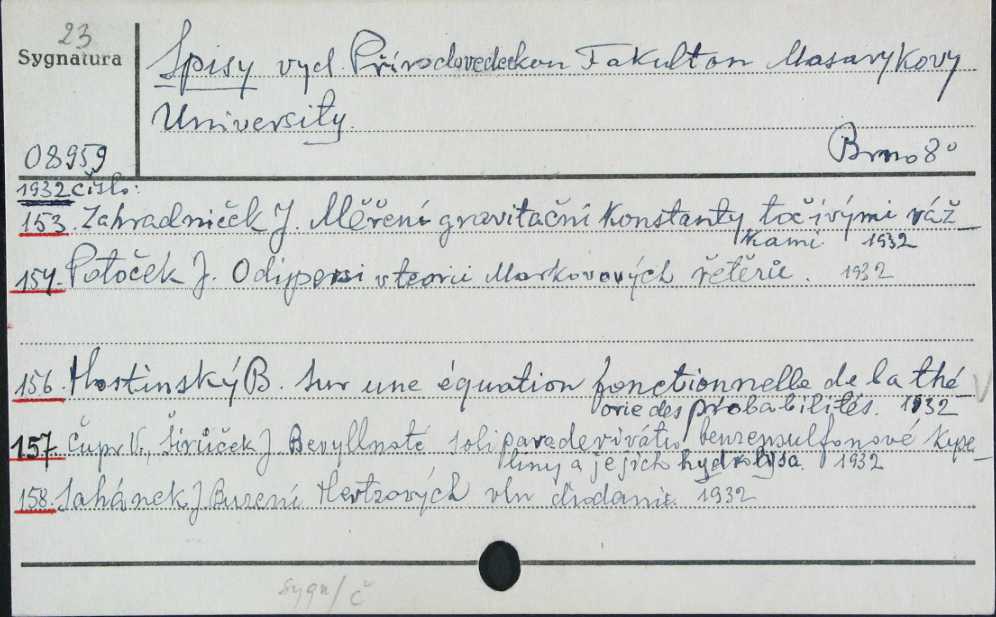 23
Sygnatura
Spisy vyd. Přírodovedeckou Fakultou Masarykovy
University.
08959
Brno 8°
1932 číslo:
153. Zahradníček J. Měření gravitační konstanty točivými váž_
kami 1932
154. Potoček J. O dispersi v teorii Markovových řetěrů. 1932
156. Hostinský B. Sur une équation fonctionnelle de la thé_
orie des probabilités. 1932
157. Čupr V., Širůček J. Beryllnaté soli paraderivátů benzensulfonové kyse_
liny a jejich hydrolysa. 1932
158. Sahánek J. Buzení Hertzových vln diodami. 1932
sygn/č